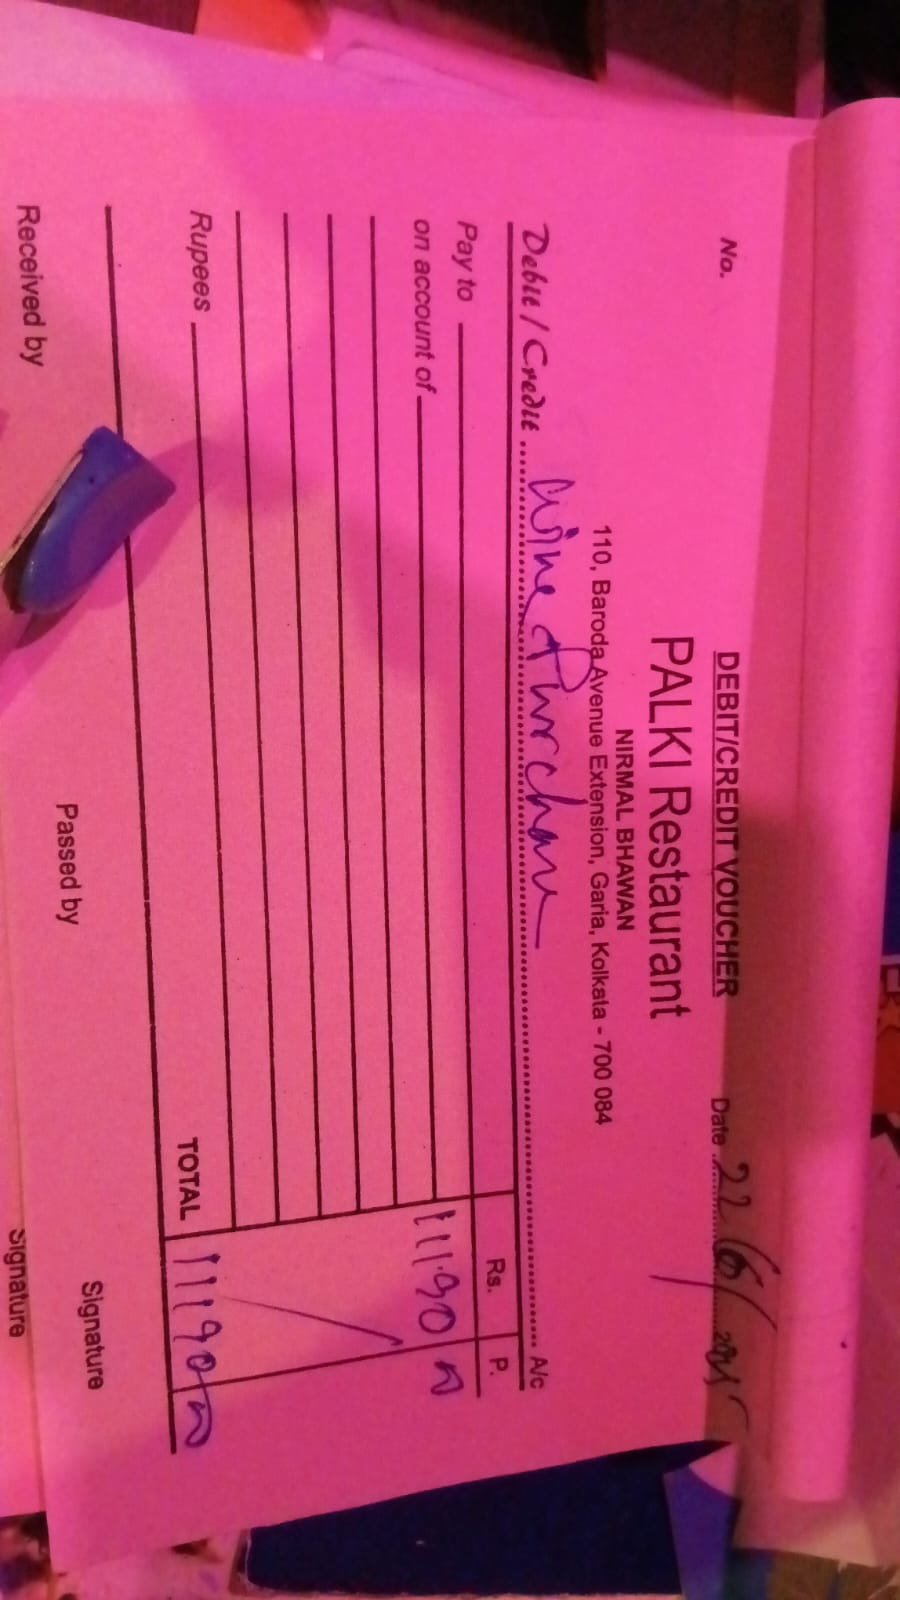 DEBIT/CREDIT VOUCHER
No. Date 22/6/2025
PALKI Restaurant
NIRMAL BHAWAN
110, Baroda Avenue Extension, Garia, Kolkata - 700 084
Debit / Credit Wine Purchase A/c
Pay to Rs. P.
on account of 11190 00
Rupees TOTAL 11190 00
Received by Passed by Signature
Signature